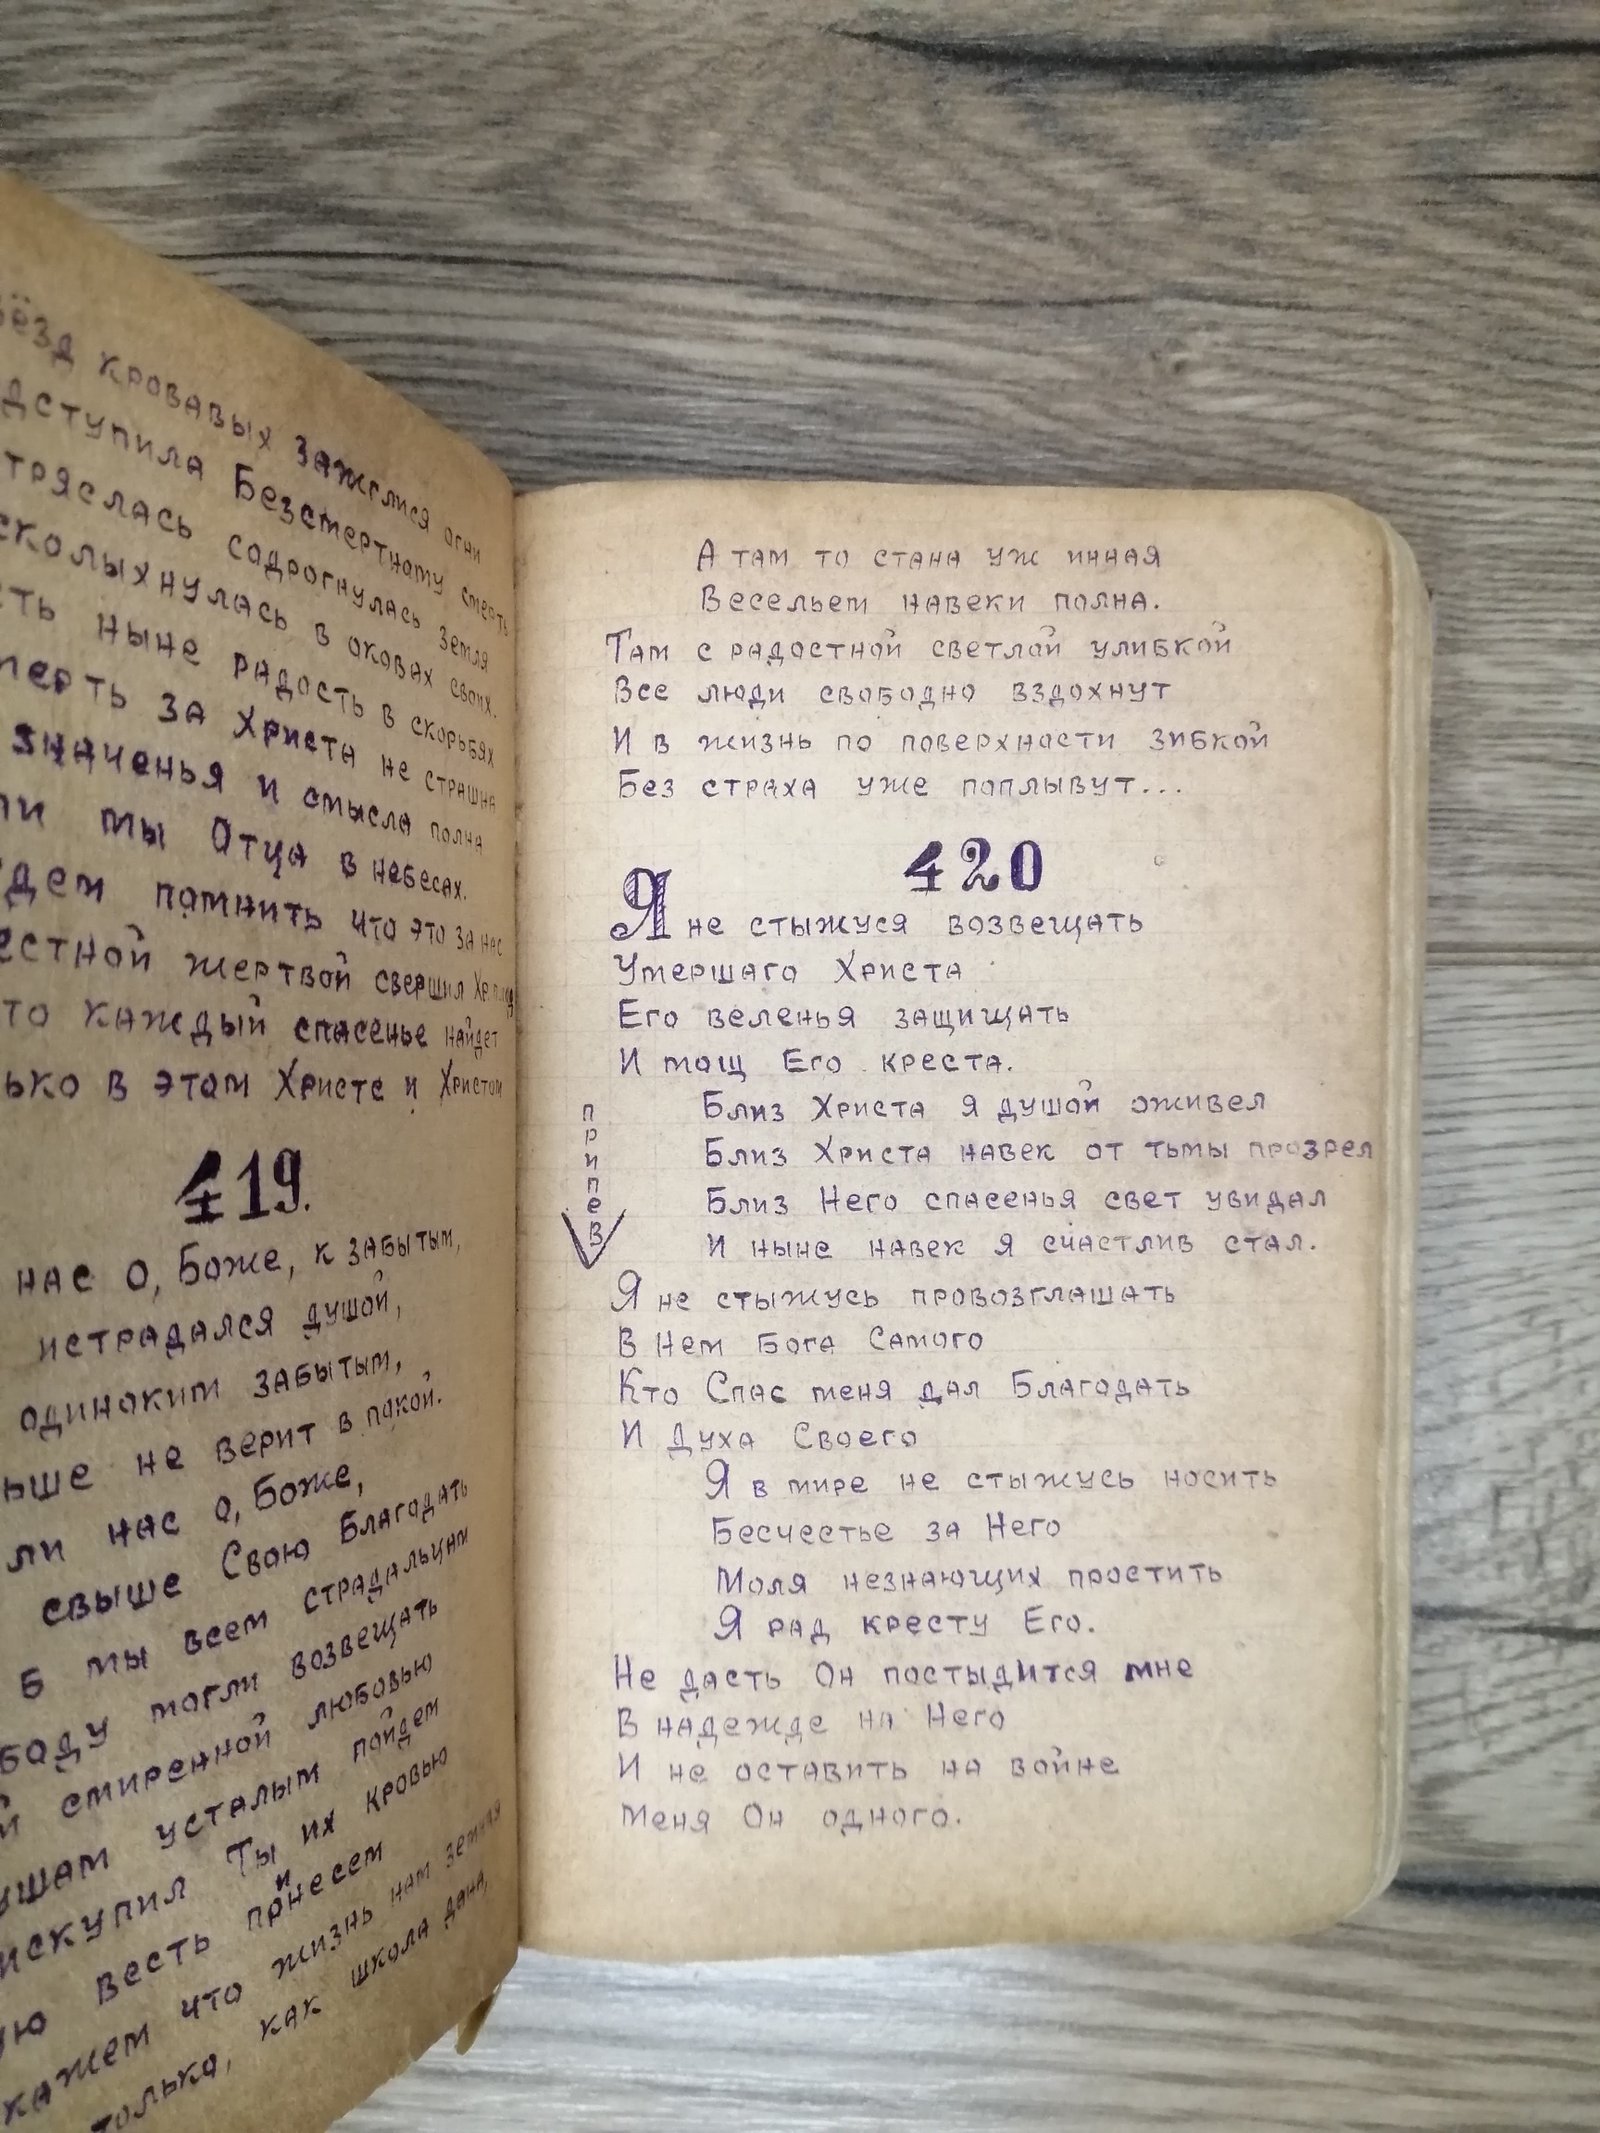 кровавых зажглися огни
Безсмертному смерть
содрогнулась земля
в оковах своих.
ныне радость в скорбях
за Христа не страшна
значенья и смысла полна
мы Отца в небесах.
помнить что это за нас
жертвой свершил
каждый спасенье найдет
в этом Христе и Христом
419.
нас о, Боже, к забытым,
истрадался душой,
одиноким забытым,
не верит в покой.
нас о, Боже,
свыше Свою Благодать
б мы всем страдальцам
могли возвещать
смиренной любовью
усталым пойдем
искупил Ты их кровью
весть принесем
что жизнь нам земная
только, как школа дана,
А там то стана уж инная
Весельем навеки полна.
Там с радостной светлой улибкой
Все люди свободно вздохнут
И в жизнь по поверхности зибкой
Без страха уже поплывут...
420
Я не стыжуся возвещать
Умершаго Христа
Его веленья защищать
И мощ Его креста.
припев
Близ Христа я душой оживел
Близ Христа навек от тьмы прозрел
Близ Него спасенья свет увидал
И ныне навек я счастлив стал.
Я не стыжусь провозглашать
В Нем Бога Самого
Кто Спас меня дал Благодать
И Духа Своего
Я в мире не стыжусь носить
Бесчестье за Него
Моля незнающих простить
Я рад кресту Его.
Не дасть Он постыдится мне
В надежде на Него
И не оставить на войне
Меня Он одного.